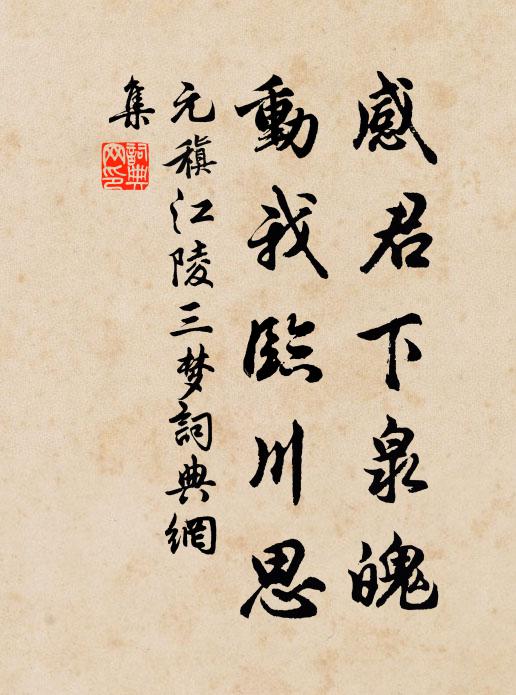 感君下泉魄
動我臨川思
元稹江陵三梦詞典網
集
詞典網印